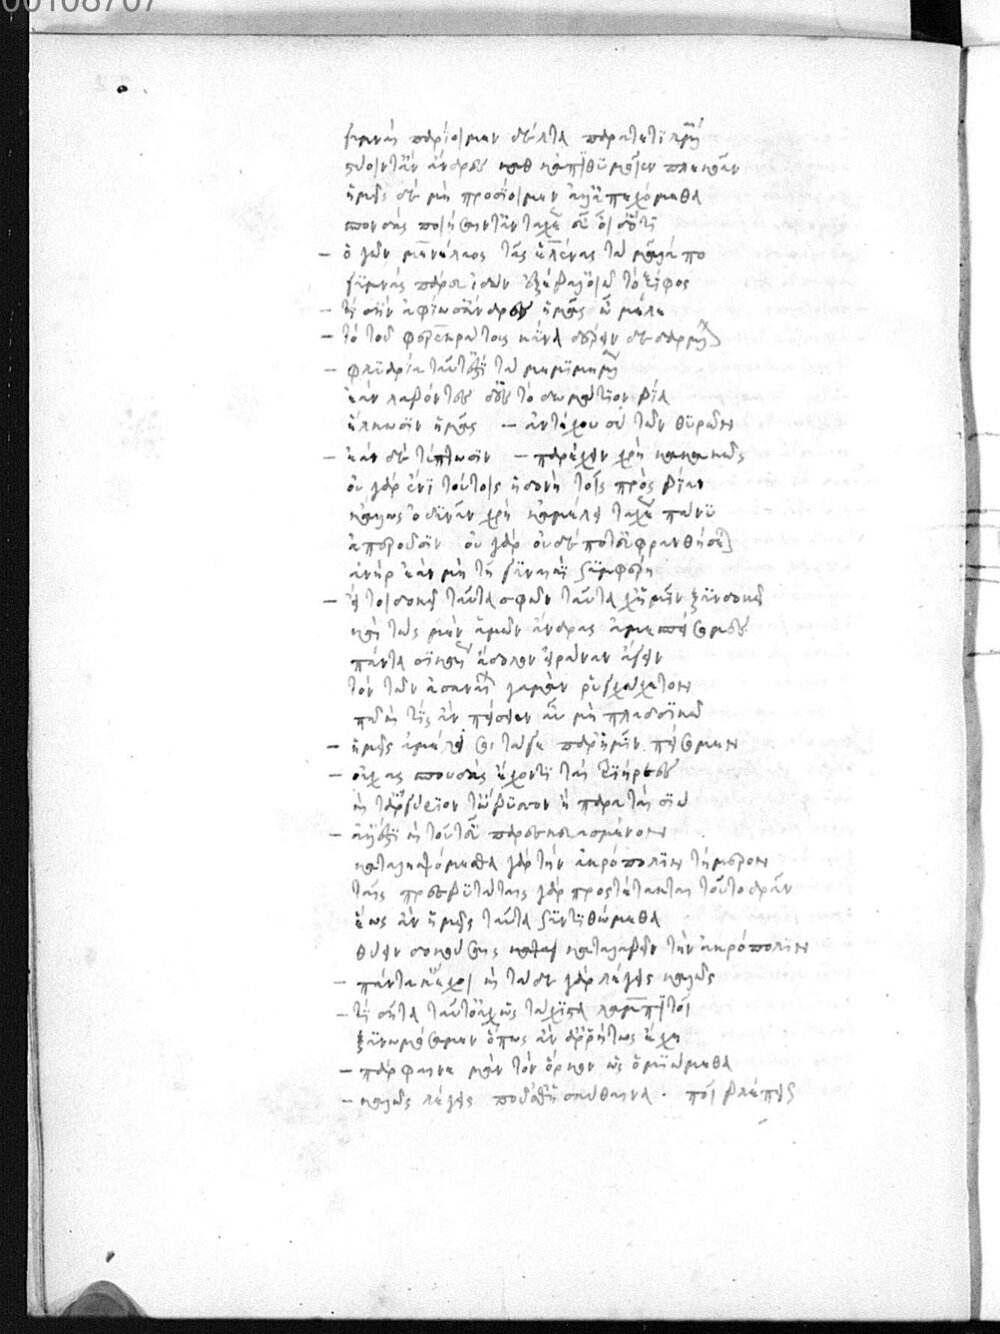 γυμναὶ παρίοιμεν δέλτα παρατετιλμέναι
στύοιντ' ἂν ἄνδρες κἀπιθυμοῖεν πλεκοῦν
ἡμεῖς δὲ μὴ προσίοιμεν ἀλλ' ἀπεχόμεθα
σπονδὰς ποιήσαιντ' ἂν ταχέως εὖ οἶδ' ὅτι
– ὁ γῶν μενέλαος τᾶς ἑλένας τὰ μᾶλά πο
γυμνᾶς παραϊδὼν ἐξέβαλ' οἰῶ τὸ ξίφος
– τί δ' ἢν ἀφίωσ' ἄνδρες ἡμᾶς ὦ μέλε
– τὸ τοῦ φερεκράτους κύνα δέρειν δεδαρμένην
– φλυαρία ταῦτ' ἐστὶ τὰ μεμιμημένα
ἐὰν λαβόντες δ' ἐς τὸ δωμάτιον βίᾳ
ἕλκωσιν ἡμᾶς – ἀντέχου σὺ τῶν θυρῶν
– ἐὰν δὲ τύπτωσιν – παρέχειν χρὴ κακὰ κακῶς
οὐ γὰρ ἔνι τούτοις ἡδονὴ τοῖς πρὸς βίαν
κἄλλως ὀδυνᾶν χρὴ κἀμέλει ταχέως πάνυ
ἀπεροῦσιν οὐ γὰρ οὐδέποτ' εὐφρανθήσεται
ἀνὴρ ἐὰν μὴ τῇ γυναικὶ συμφέρῃ
– εἴ τοι δοκεῖ ταῦτα σφῶν ταῦτα χἠμῖν ξυνδοκεῖ
καὶ τὼς μὲν ἁμῶν ἄνδρας ἁμὲς πείσομες
πάντα δικαίως ἄδολον εἰράναν ἄγειν
τὸν τῶν ἀσαναίων γαμὰν ῥυαχετον
πῶς τίς ἂν πείσειεν αὖ μὴ πλαδδιῆν
– ἡμεῖς ἀμέλει σοι τά γε παρ' ἡμῖν πείσομεν
– οὐχ ἇς σπουδὰς ἔχοντι ταὶ τριήρεες
καὶ τἀργύριον τὤβυσσον ᾖ παρὰ τᾷ σιῷ
– ἀλλ' ἔστι καὶ τοῦτ' εὖ παρεσκευασμένον
καταληψόμεθα γὰρ τὴν ἀκρόπολιν τήμερον
ταῖς πρεσβυτάταις γὰρ προστέτακται τοῦτο δρᾶν
ἕως ἂν ἡμεῖς ταῦτα συντιθώμεθα
θύειν δοκούσαις καταλαβεῖν τὴν ἀκρόπολιν
– πάντα κ' εὖ ἔχοι καὶ τᾷδε γὰρ λέγεις καλῶς
– τί δῆτα ταῦτ' οὐχ ὡς τάχιστα λαμπιτοῖ
ξυνωμόσαμεν ὅπως ἂν ἀρρήκτως ἔχῃ
– πάρφαινε μὰν τὸν ὅρκον ὡς ὀμιώμεθα
– καλῶς λέγεις ποῦ 'σθ' ἡ σκύθαινα · ποῖ βλέπεις